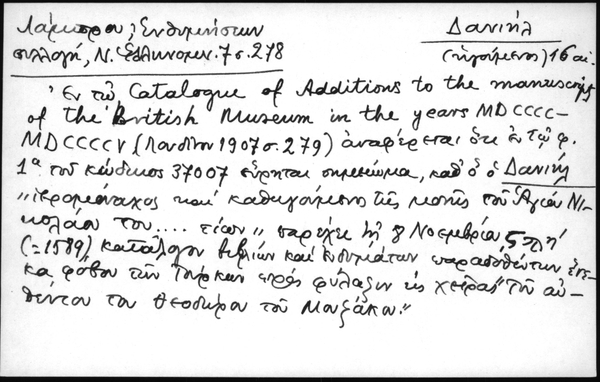 Λάμπρου, Ενθυμήσεων
συλλογή, Ν. Ελληνομν. 7 σ. 278
Δανιήλ
(ηγούμενος) 16 αι.
Ἐν τῷ Catalogue of Additions to the manuscripts
of the British Museum in the years MDCCCC-
MDCCCCV (Λονδῖνον 1907 σ. 279) ἀναφέρεται ὅτι ἐν τῷ φ.
1α τοῦ κώδικος 37007 εὕρηται σημείωμα, καθ' ὃ ὁ Δανιήλ
"ἱερομόναχος καὶ καθηγούμενος τῆς μονῆς τοῦ Ἁγίου Νι-
κολάου του .... τίων" παρέχει τῇ 8 Νοεμβρίου
(=1589) κατάλογον βιβλίων καὶ ἐνδυμάτων παραδοθέντων ἕνε-
κα φόβου τῶν Τούρκων πρὸς φύλαξιν εἰς χεῖρας "τοῦ αὐ-
θέντου του Θεοδώρου τοῦ Μουζάκη."